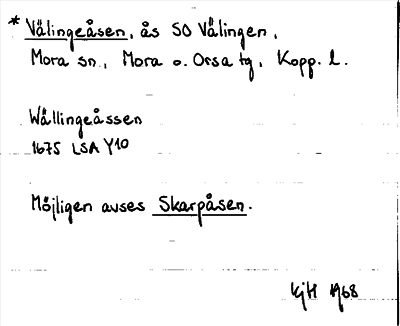 * Vålingeåsen, ås SO Vålingen,
Mora sn., Mora o. Orsa tg, Kopp. l.
Wållingeåssen
1675 LSA Y10
Möjligen avses Skarpåsen.
KjH 1968